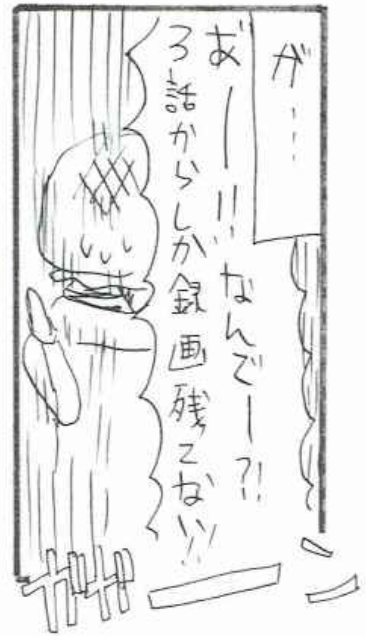 が…
あ゛ーー!! なんでー?!
3話からしか録画残てない!!
ガガーン